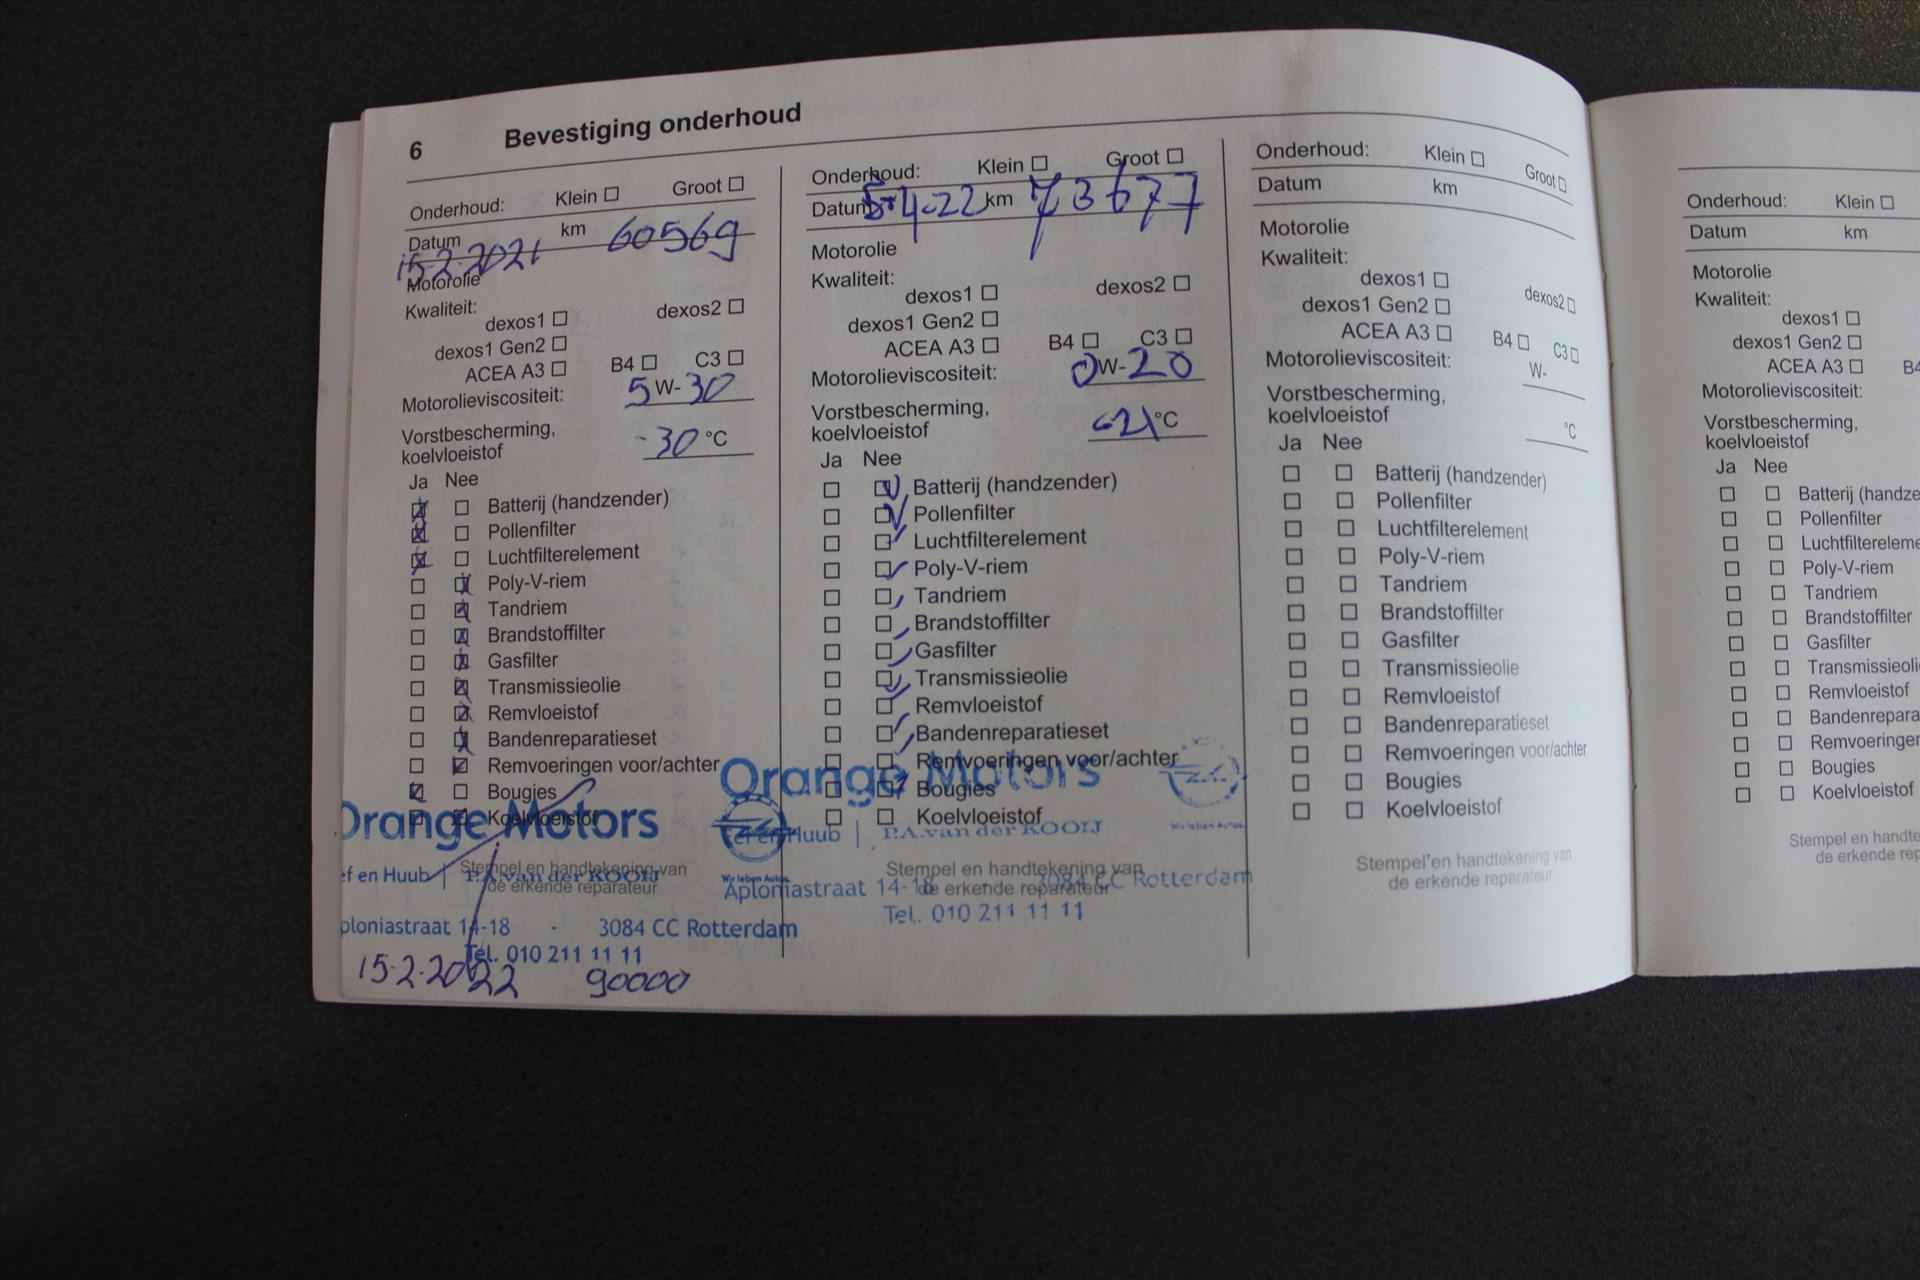 6 Bevestiging onderhoud
Onderhoud: Klein ☐ Groot ☐
Datum 15-2-2021 km 60569
Motorolie
Kwaliteit:
dexos1 ☐ dexos2 ☐
dexos1 Gen2 ☐
ACEA A3 ☐ B4 ☐ C3 ☐
Motorolieviscositeit: 5 W- 30
Vorstbescherming,
koelvloeistof -30 °C
Ja Nee
Batterij (handzender)
Pollenfilter
Luchtfilterelement
Poly-V-riem
Tandriem
Brandstoffilter
Gasfilter
Transmissieolie
Remvloeistof
Bandenreparatieset
Remvoeringen voor/achter
Bougies
Koelvloeistof
Orange Motors
Stempel en handtekening van
de erkende reparateur
ef en Huub | P.A. van der KOOIJ
Wir leben Autos.
ploniastraat 14-18 - 3084 CC Rotterdam
Tel. 010 211 11 11
15-2-2022 90000
Onderhoud: Klein ☐ Groot ☐
Datum 5-4-22 km 73677
Motorolie
Kwaliteit:
dexos1 ☐ dexos2 ☐
dexos1 Gen2 ☐
ACEA A3 ☐ B4 ☐ C3 ☐
Motorolieviscositeit: 0 W- 20
Vorstbescherming,
koelvloeistof -21 °C
Ja Nee
Batterij (handzender)
Pollenfilter
Luchtfilterelement
Poly-V-riem
Tandriem
Brandstoffilter
Gasfilter
Transmissieolie
Remvloeistof
Bandenreparatieset
Remvoeringen voor/achter
Bougies
Koelvloeistof
Orange Motors
Huub | P.A. van der KOOIJ
Stempel en handtekening van
de erkende reparateur
Aploniastraat 14-18 3084 CC Rotterdam
Tel. 010 211 11 11
Onderhoud: Klein ☐ Groot ☐
Datum km
Motorolie
Kwaliteit:
dexos1 ☐ dexos2 ☐
dexos1 Gen2 ☐
ACEA A3 ☐ B4 ☐ C3 ☐
Motorolieviscositeit: W-
Vorstbescherming,
koelvloeistof °C
Ja Nee
Batterij (handzender)
Pollenfilter
Luchtfilterelement
Poly-V-riem
Tandriem
Brandstoffilter
Gasfilter
Transmissieolie
Remvloeistof
Bandenreparatieset
Remvoeringen voor/achter
Bougies
Koelvloeistof
Stempel en handtekening van
de erkende reparateur
Onderhoud: Klein ☐
Datum km
Motorolie
Kwaliteit:
dexos1 ☐
dexos1 Gen2 ☐
ACEA A3 ☐ B4
Motorolieviscositeit:
Vorstbescherming,
koelvloeistof
Ja Nee
Batterij (handze
Pollenfilter
Luchtfiltereleme
Poly-V-riem
Tandriem
Brandstoffilter
Gasfilter
Transmissieoli
Remvloeistof
Bandenrepara
Remvoeringer
Bougies
Koelvloeistof
Stempel en handte
de erkende rep